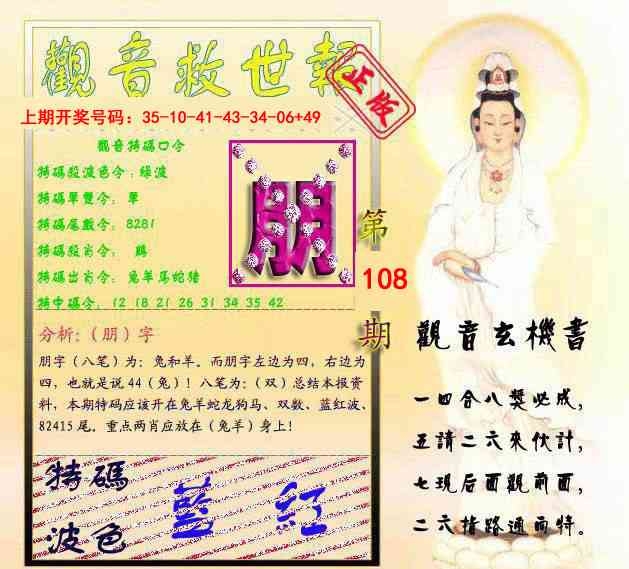 觀音救世報
正版
上期开奖号码：35-10-41-43-34-06+49
觀音特碼口令
特碼殺波色令：绿波
特碼單雙令：單
特碼尾數令：8281
特碼殺肖令：鷄
特碼出肖令：兔羊马蛇猪
特中碼令：12 18 21 26 31 34 35 42
朋
第
108
期
分析：（朋）字
朋字（八笔）为：兔和羊。而朋字左边为四，右边为
四，也就是说44（兔）！八笔为：（双）总结本报资
料，本期特码应该开在兔羊蛇龙狗马、双数、蓝红波、
82415尾。重点两肖应放在（兔羊）身上！
特碼
波色
藍 紅
觀音玄機書
一四合八獎必成，
五請二六來伙計，
七現后面觀前面，
二六指路通两特。